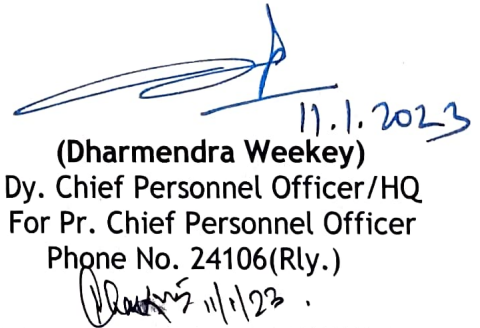 11.1.2023
(Dharmendra Weekey)
Dy. Chief Personnel Officer/HQ
For Pr. Chief Personnel Officer
Phone No. 24106(Rly.)
11/1/23